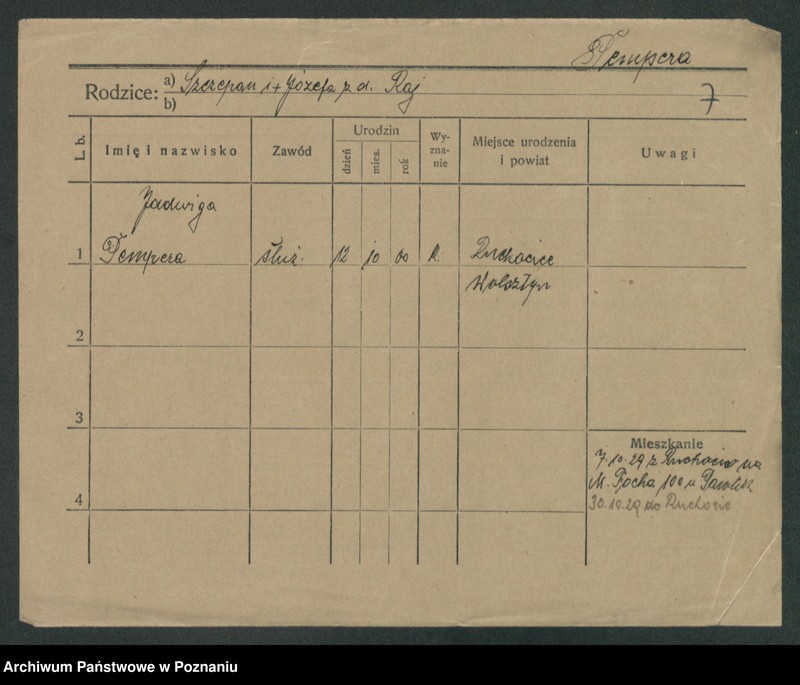 Tempera
Rodzice: a) Szczepan i + Józefa z d. Raj
b)
7
L. b. Imię i nazwisko Zawód Urodzin dzień mies. rok Wy-zna-nie Miejsce urodzenia i powiat Uwagi
Jadwiga
1 Tempera służ. 12 10 00 R. Ruchocice
Wolsztyn
2
3
Mieszkanie
7.10.29 z Ruchocic na
M. Focha 100 u
4
30.10.29 do Ruchocic
Archiwum Państwowe w Poznaniu